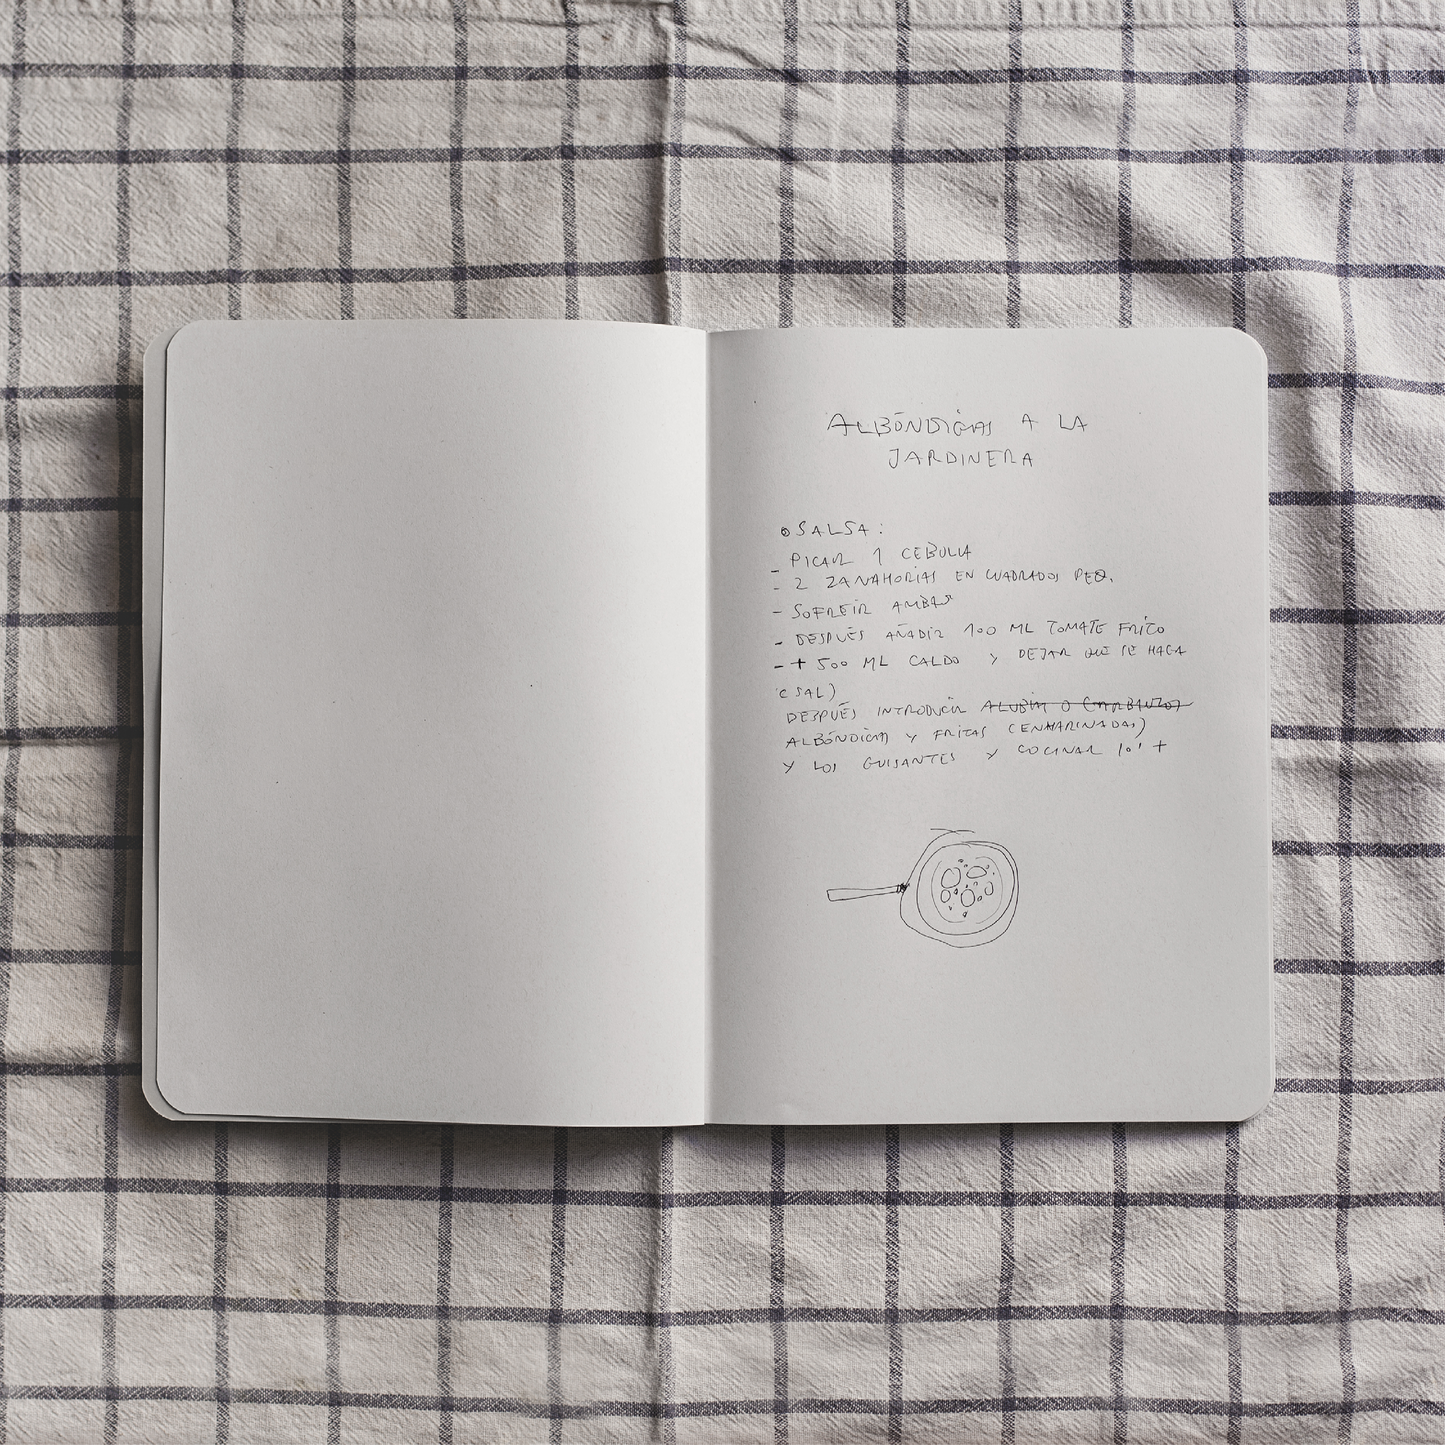 ALBÓNDIGAS A LA
JARDINERA
SALSA:
- PICAR 1 CEBOLLA
- 2 ZANAHORIAS EN CUADRADOS PEQ.
- SOFREÍR AMBAS
- DESPUÉS AÑADIR 100 ML TOMATE FRITO
- + 500 ML CALDO Y DEJAR QUE SE HAGA
(SAL)
DESPUÉS INTRODUCIR ALUBIAS O GARBANZOS
ALBÓNDIGAS Y FRITAS (ENHARINADAS)
Y LOS GUISANTES Y COCINAR 10' +